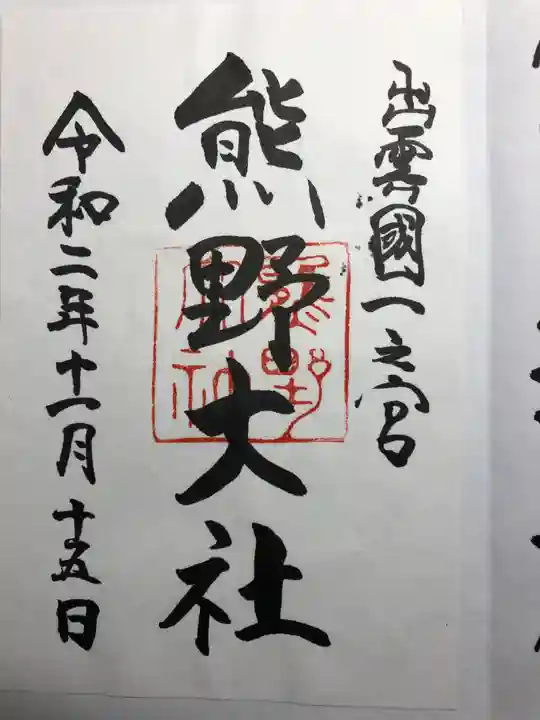 出雲國一之宮
熊野大社
令和二年十一月十五日
熊野
大社